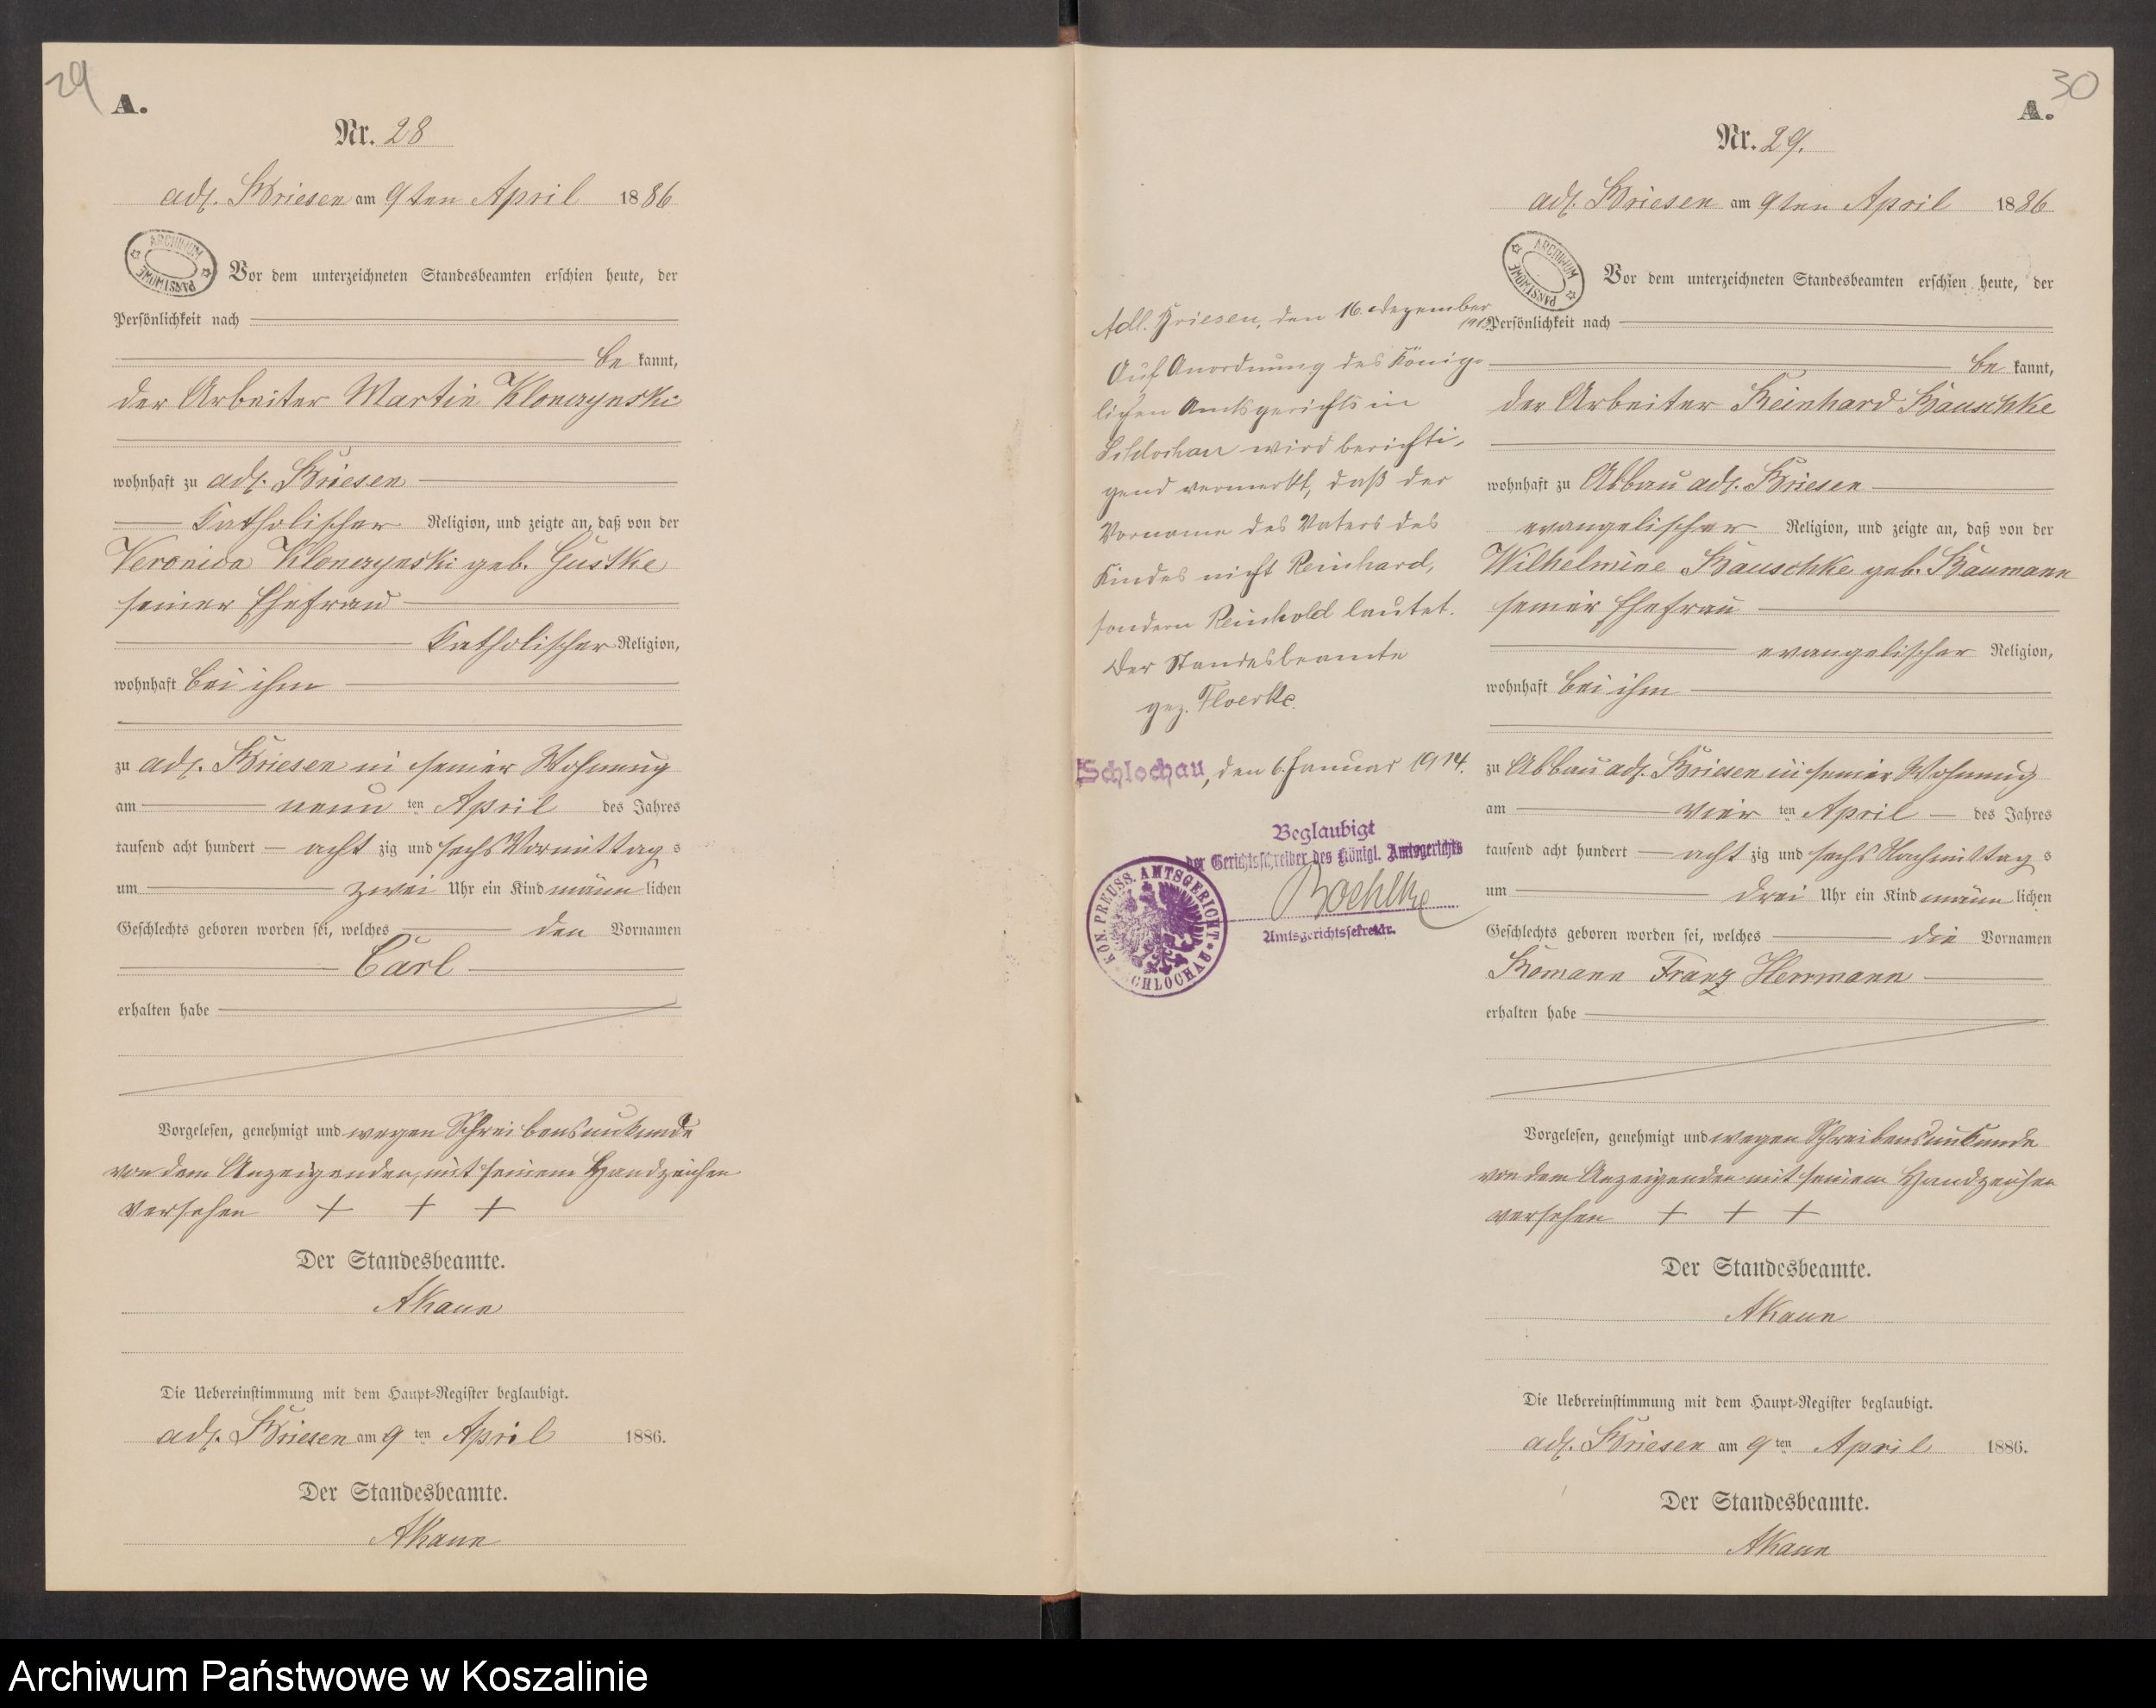 29
A.
Nr. 28
adl. Briesen am 9ten April 1886
ARCHIWUM PAŃSTWOWE
Vor dem unterzeichneten Standesbeamten erschien heute, der
Persönlichkeit nach
be kannt,
der Arbeiter Martin Klonczynski
wohnhaft zu adl. Briesen
katholischer Religion, und zeigte an, daß von der
Veronica Klonczynski geb. Gustke
seiner Ehefrau
katholischer Religion,
wohnhaft bei ihm
zu adl. Briesen in seiner Wohnung
am neun ten April des Jahres
tausend acht hundert acht zig und sechs Vormittag s
um zwei Uhr ein Kind männ lichen
Geschlechts geboren worden sei, welches den Vornamen
Carl
erhalten habe
Vorgelesen, genehmigt und wegen Schreibensunkunde
von dem Anzeigenden mit seinem Handzeichen
versehen + + +
Der Standesbeamte.
AKaun
Die Uebereinstimmung mit dem Haupt-Register beglaubigt.
adl. Briesen am 9 ten April 1886.
Der Standesbeamte.
AKaun
Adl. Briesen, den 16. Dezember
Auf Anordnung des König-
lichen Amtsgerichts in
Schlochau wird berichti-
gend vermerkt, daß der
Vorname des Vaters des
Kindes nicht Reinhard,
sondern Reinhold lautet.
Der Standesbeamte
gez. Floerke.
Schlochau, den 6. Januar 1914.
Beglaubigt
der Gerichtsschreiber des Königl. Amtsgerichts
Amtsgerichtssekretär.
KÖN. PREUSS. AMTSGERICHT SCHLOCHAU
30
A.
Nr. 29.
adl. Briesen am 9ten April 1886
ARCHIWUM PAŃSTWOWE
Vor dem unterzeichneten Standesbeamten erschien heute, der
Persönlichkeit nach
be kannt,
der Arbeiter Reinhard Bauschke
wohnhaft zu Abbau adl. Briesen
evangelischer Religion, und zeigte an, daß von der
Wilhelmine Bauschke geb. Baumann
seiner Ehefrau
evangelischer Religion,
wohnhaft bei ihm
zu Abbau adl. Briesen in seiner Wohnung
am vier ten April des Jahres
tausend acht hundert acht zig und sechs Nachmittag s
um drei Uhr ein Kind männ lichen
Geschlechts geboren worden sei, welches die Vornamen
Romann Franz Herrmann
erhalten habe
Vorgelesen, genehmigt und wegen Schreibensunkunde
von dem Anzeigenden mit seinem Handzeichen
versehen + + +
Der Standesbeamte.
AKaun
Die Uebereinstimmung mit dem Haupt-Register beglaubigt.
adl. Briesen am 9 ten April 1886.
Der Standesbeamte.
AKaun
Archiwum Państwowe w Koszalinie